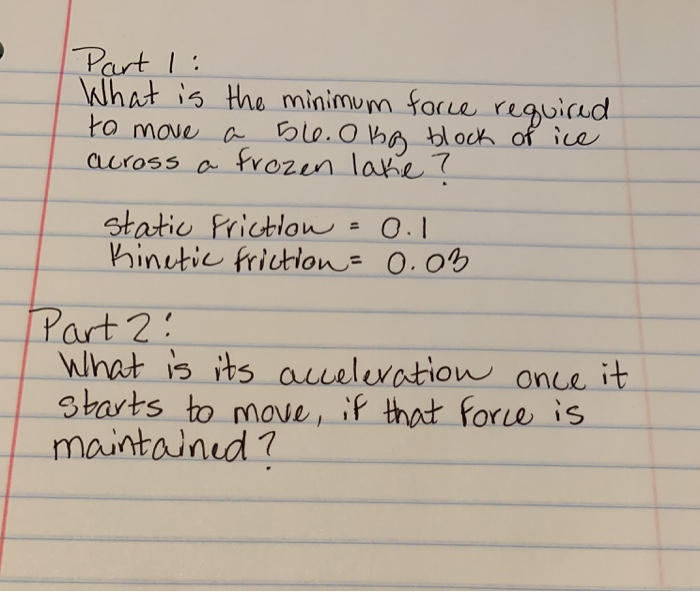 Part 1:
What is the minimum force required
to move a 56.0 kg block of ice
across a frozen lake?
Static Friction = 0.1
Kinetic friction = 0.03
Part 2:
What is its acceleration once it
starts to move, if that force is
maintained?